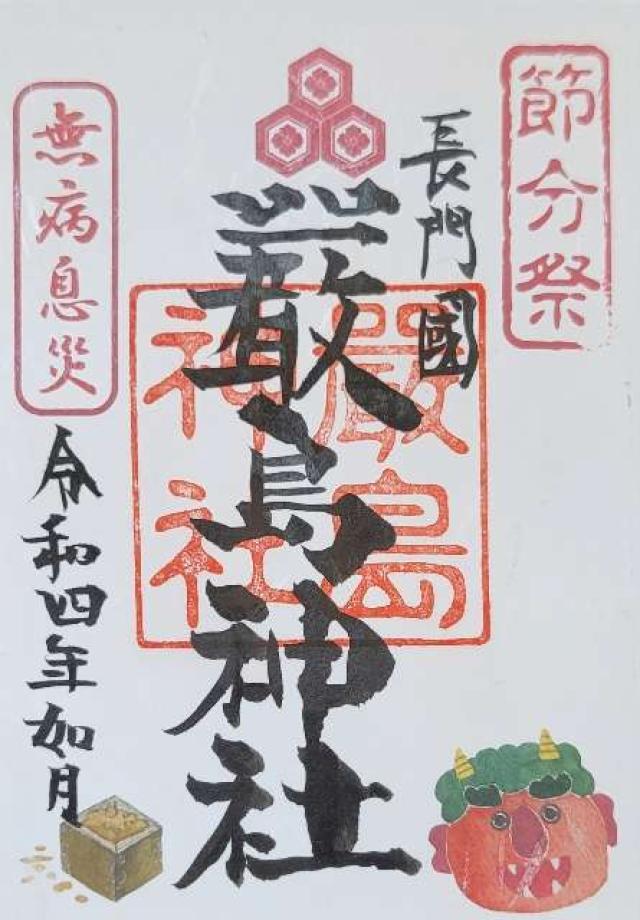 節分祭
長門國
嚴島神社
嚴島
神社
無病息災
令和四年如月